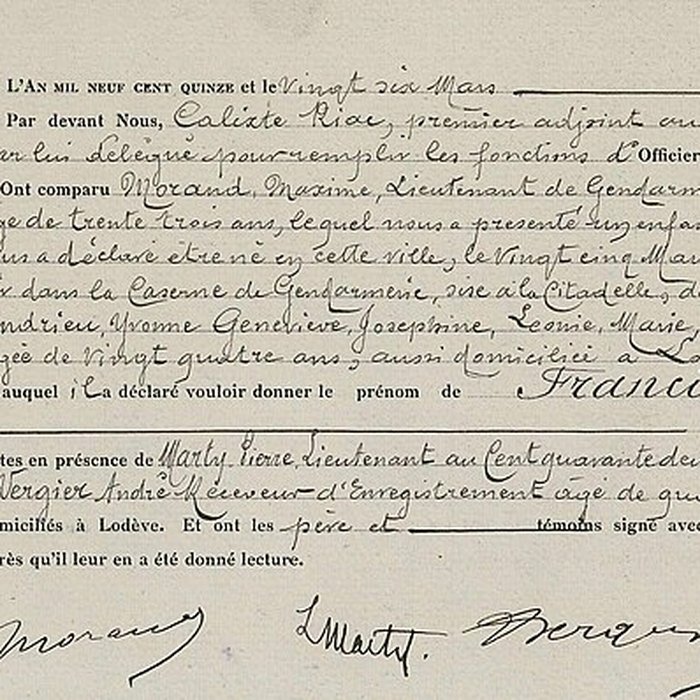 L'AN MIL NEUF CENT QUINZE et le Vingt six Mars
Par devant Nous, Calixte Riac, premier adjoint au
ar lui délégué pour remplir les fonctions d'Officier
Ont comparu Morand, Maxime, Lieutenant de Gendarm
ge de trente trois ans, lequel nous a présenté un enfa
us a déclaré être né en cette ville, le Vingt cinq Mar
r dans la Caserne de Gendarmerie, sise à la Citadelle, d
ndrieu, Yvonne Geneviève, Josephine, Leonie, Marie,
gée de Vingt quatre ans, aussi domiciliée a Lo
auquel il a déclaré vouloir donner le prénom de Franc
tes en présence de Marty Pierre, Lieutenant au Cent quarante de
Vergier André Receveur d'Enregistrement âgé de
miciliés à Lodève. Et ont les père et témoins signé avec
rès qu'il leur en a été donné lecture.
Morand Marty